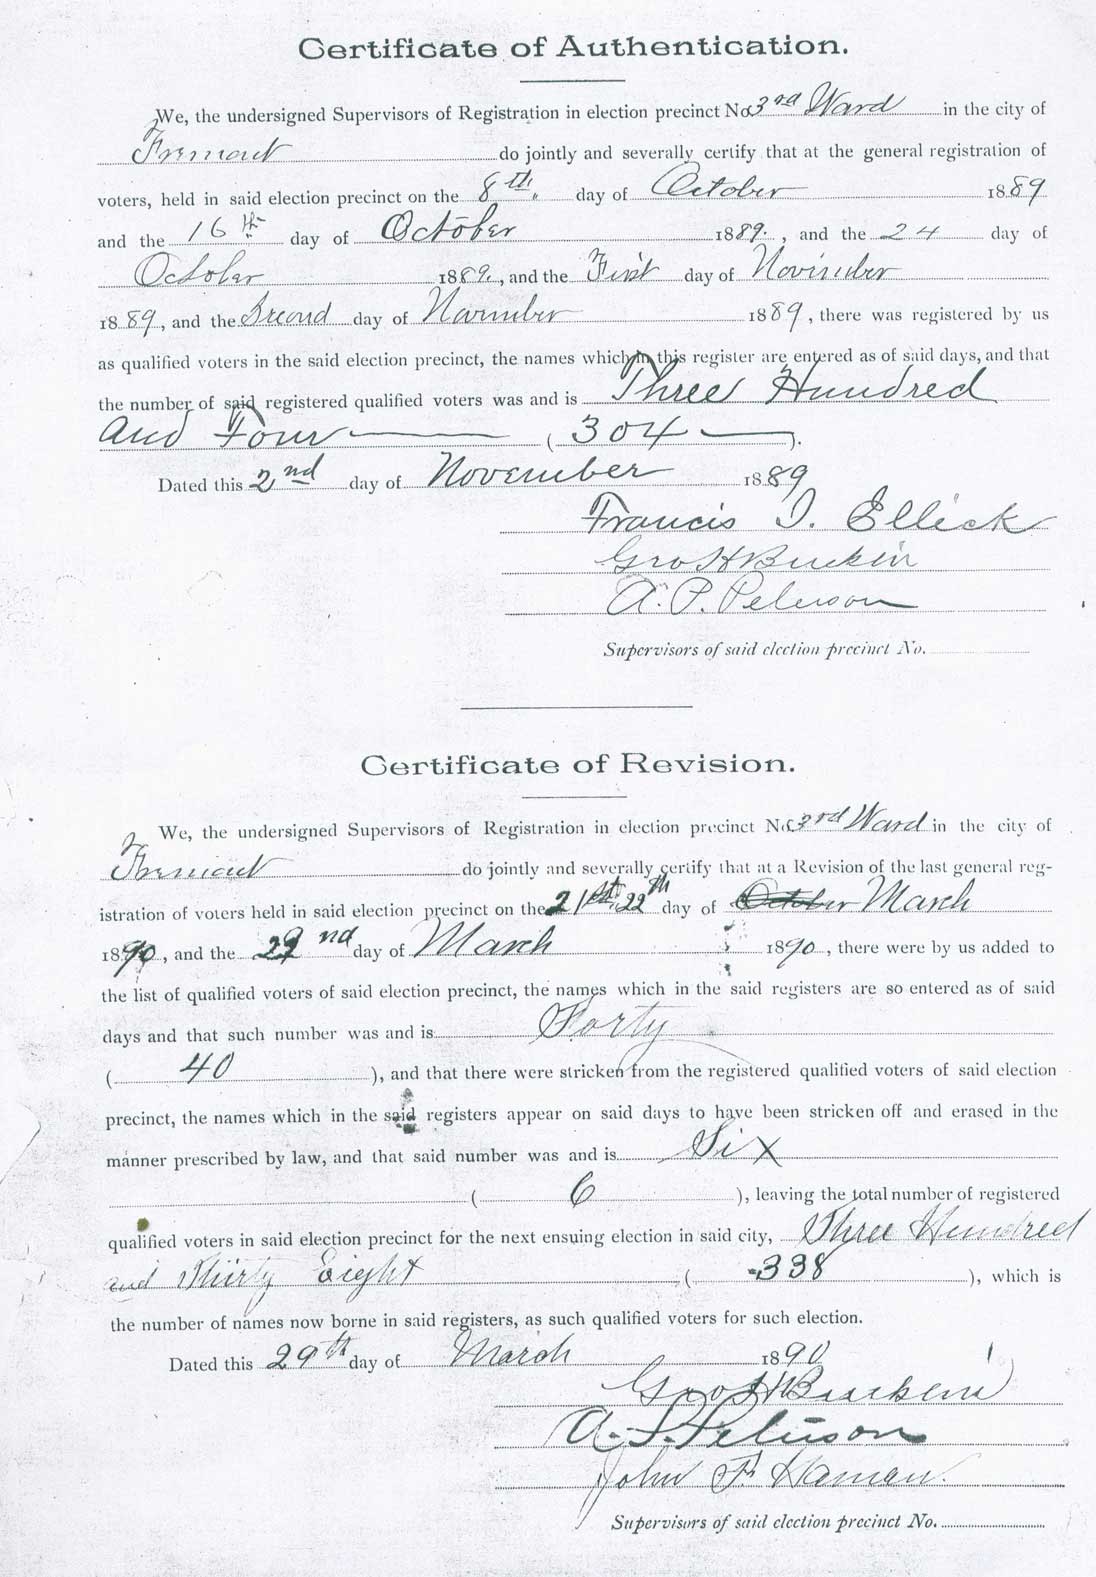 Certificate of Authentication.
We, the undersigned Supervisors of Registration in election precinct No. 3rd Ward in the city of
Fremont do jointly and severally certify that at the general registration of
voters, held in said election precinct on the 8th day of October 1889
and the 16th day of October 1889, and the 24 day of
October 1889, and the First day of November
1889, and the Second day of November 1889, there was registered by us
as qualified voters in the said election precinct, the names which in this register are entered as of said days, and that
the number of said registered qualified voters was and is Three Hundred
and Four (304).
Dated this 2nd day of November 1889
Francis I. Ellick
Geo H
A. P. Peterson
Supervisors of said election precinct No.
Certificate of Revision.
We, the undersigned Supervisors of Registration in election precinct No. 3rd Ward in the city of
Fremont do jointly and severally certify that at a Revision of the last general reg-
istration of voters held in said election precinct on the 21st, 22th day of October March
1890, and the day of March 1890, there were by us added to
the list of qualified voters of said election precinct, the names which in the said registers are so entered as of said
days and that such number was and is Forty
(40), and that there were stricken from the registered qualified voters of said election
precinct, the names which in the said registers appear on said days to have been stricken off and erased in the
manner prescribed by law, and that said number was and is Six
(6), leaving the total number of registered
qualified voters in said election precinct for the next ensuing election in said city, Three Hundred
and Thirty Eight (338), which is
the number of names now borne in said registers, as such qualified voters for such election.
Dated this 29th day of March 1890
Geo H
Peterson
John F. Haman.
Supervisors of said election precinct No.